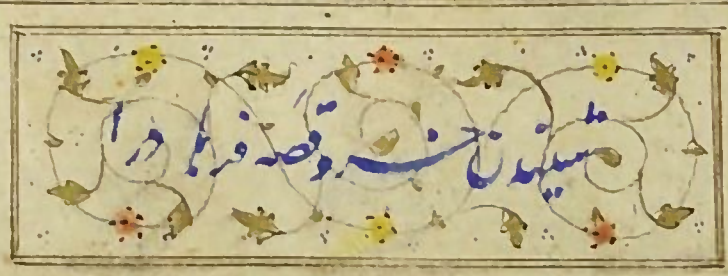 شنیدن خسرو قصه فرهاد را